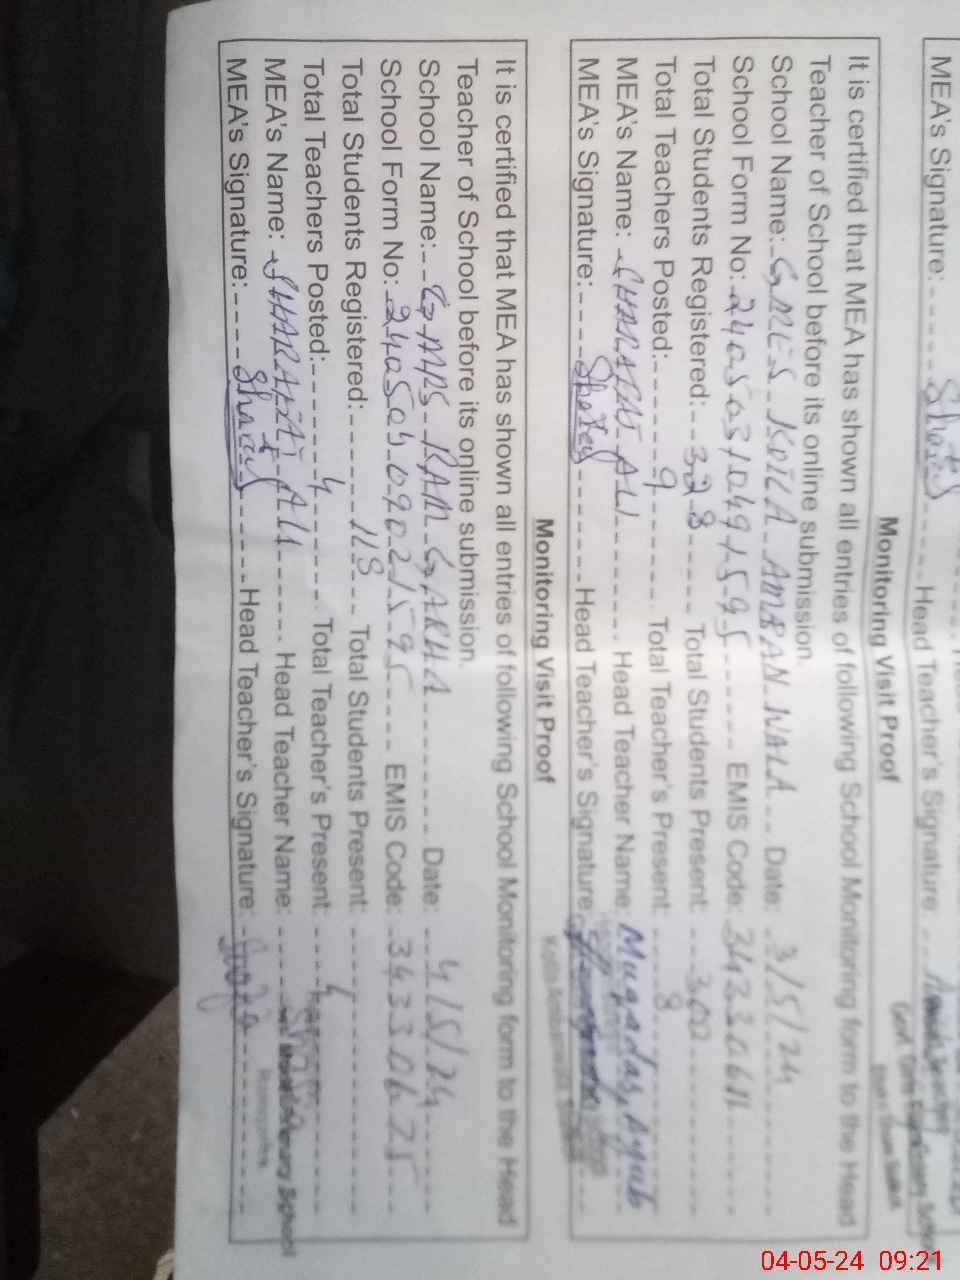 MEA's Signature: Head Teacher's Signature:
Monitoring Visit Proof
It is certified that MEA has shown all entries of following School Monitoring form to the Head
Teacher of School before its online submission.
School Name: KOTLA AMBAN WALA Date: 3/5/24
School Form No: EMIS Code: 34330611
Total Students Registered: 328 Total Students Present: 300
Total Teachers Posted: 9 Total Teacher's Present: 8
MEA's Name: SHARAFAT ALI Head Teacher Name: Muqadas Ayub
MEA's Signature: Head Teacher's Signature:
Monitoring Visit Proof
It is certified that MEA has shown all entries of following School Monitoring form to the Head
Teacher of School before its online submission.
School Name: GMPS RAM GARHA Date: 4/5/24
School Form No: EMIS Code: 34330625
Total Students Registered: 118 Total Students Present:
Total Teachers Posted: 4 Total Teacher's Present: 4
MEA's Name: SHARAFAT ALI Head Teacher Name:
MEA's Signature: Head Teacher's Signature:
04-05-24 09:21